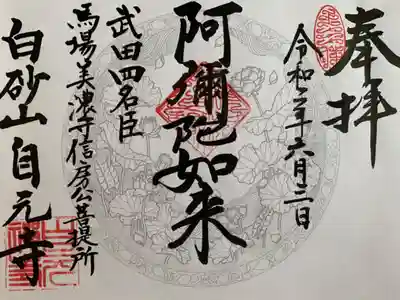 奉拝
令和六年六月二日
阿彌陀如来
武田四名臣
馬場美濃守信房公菩提所
白砂山自元寺